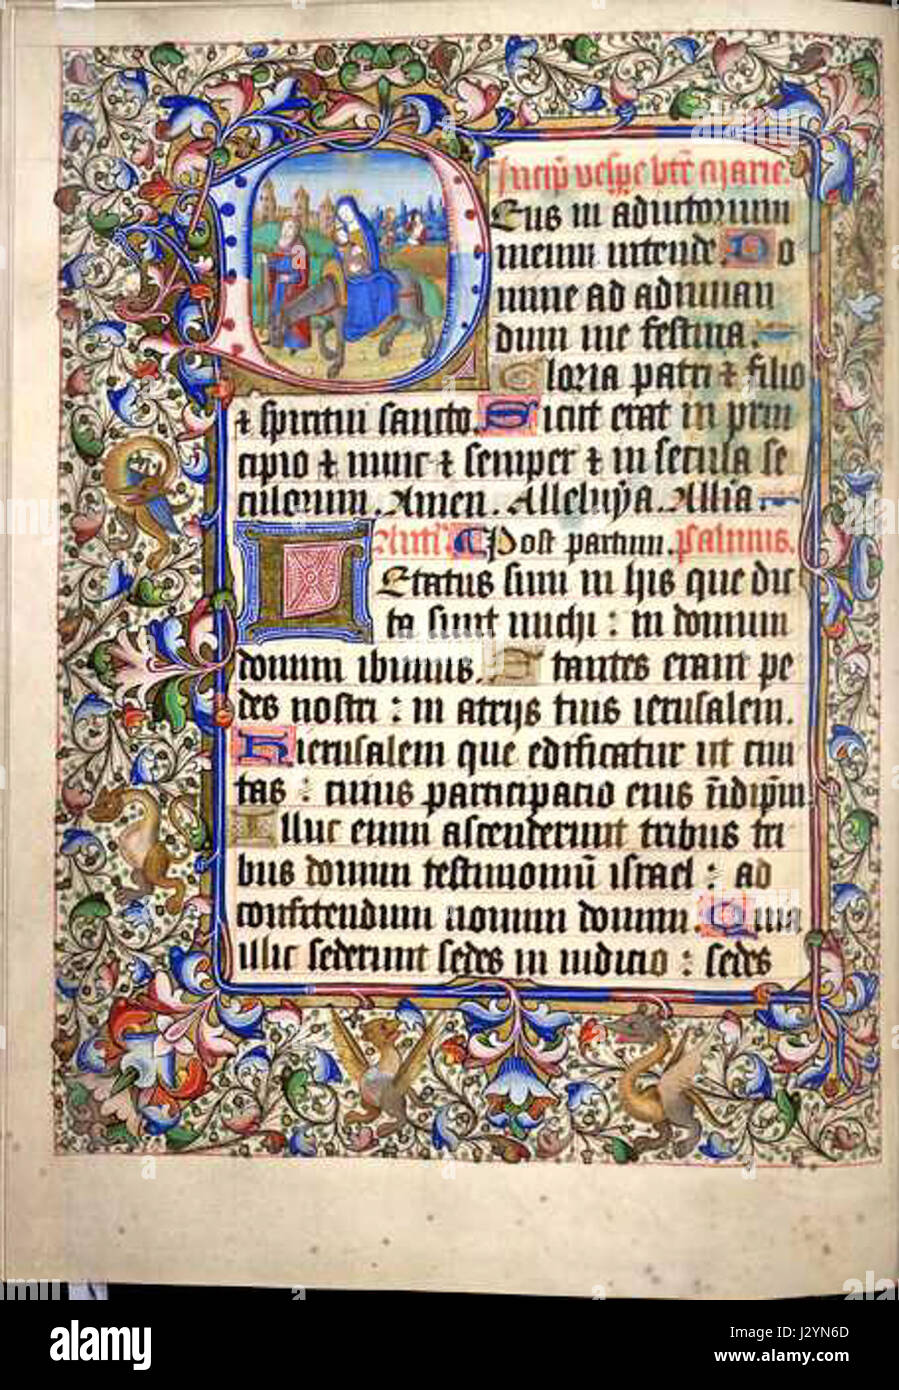 Incipiūt vespe btē marie.
Eus in adiutorium
meum intende. Do
mine ad adiuuan
dum me festina.
Gloria patri & filio
& spiritui sancto. Sicut erat in prin
cipio & nunc & semper & in secula se
culorum. Amen. Alleluya. Allia
Post partum. Psalmus.
LEtatus sum in his que dic
ta sunt michi : in domum
domini ibimus. Stantes erant pe
des nostri : in atrijs tuis ierusalem.
Hierusalem que edificatur ut ciui
tas : cuius participatio eius
Illuc enim ascenderunt tribus tri
bus domini testimoniū israel : ad
confitendum nomini domini. Quia
illic sederunt sedes in iudicio : sedes
alamy
Image ID: 2JYN6D
www.alamy.com